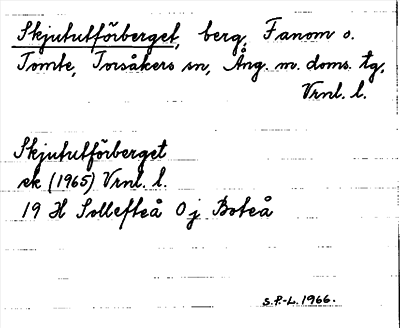 Skjututförberget, berg, Fanom o.
Tomte, Torsåkers sn, Ång. m. doms. tg,
Vrnl. l.
Skjututförberget
ek (1965) Vrnl. l.
19 H Sollefteå O j Boteå
S.P.-L. 1966.